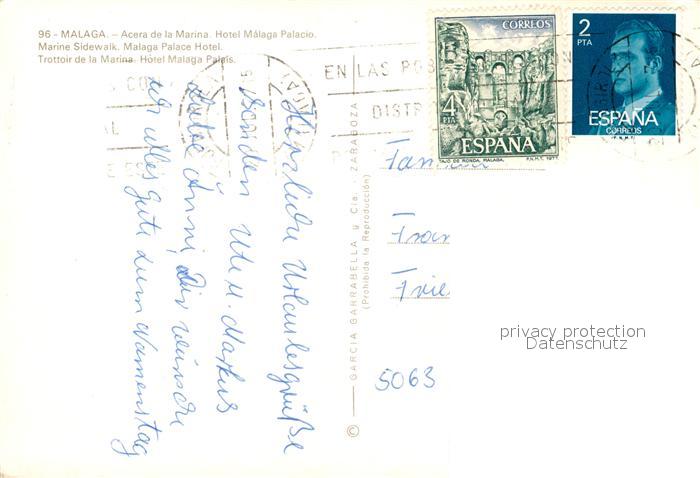 96 - MALAGA. - Acera de la Marina. Hotel Málaga Palacio.
Marine Sidewalk. Malaga Palace Hotel.
Trottoir de la Marina. Hôtel Malaga Palais.
CORREOS
4
PTA
ESPAÑA
TAJO DE RONDA, MALAGA. F.N.M.T. 1977
2
PTA
ESPAÑA
CORREOS
F.N.M.T.
EN LAS
DISTR
Herzliche Urlaubsgrüße
senden Ute u. Markus
Liebe Anni, Dir wünschen
wir alles Gute zum Namenstag
© GARCIA GARRABELLA y Cia. - ZARAGOZA
(Prohibida la Reproducción)
Fam
Fran
Frie
5063
privacy protection
Datenschutz